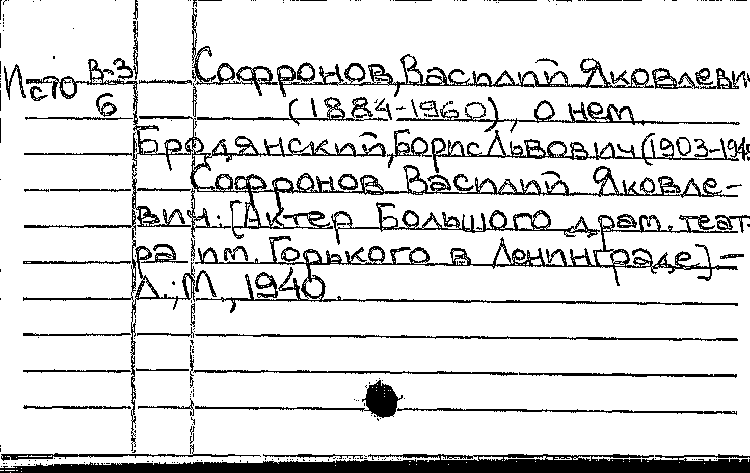 Исто В-3 Софронов, Василий Яковлевич
6 (1884-1960), о нем.
Бродянский, Борис Львович (1903-194
Софронов Василий Яковле-
вич: [Актер Большого драм. теат-
ра им. Горького в Ленинграде] -
Л.; М., 1940.